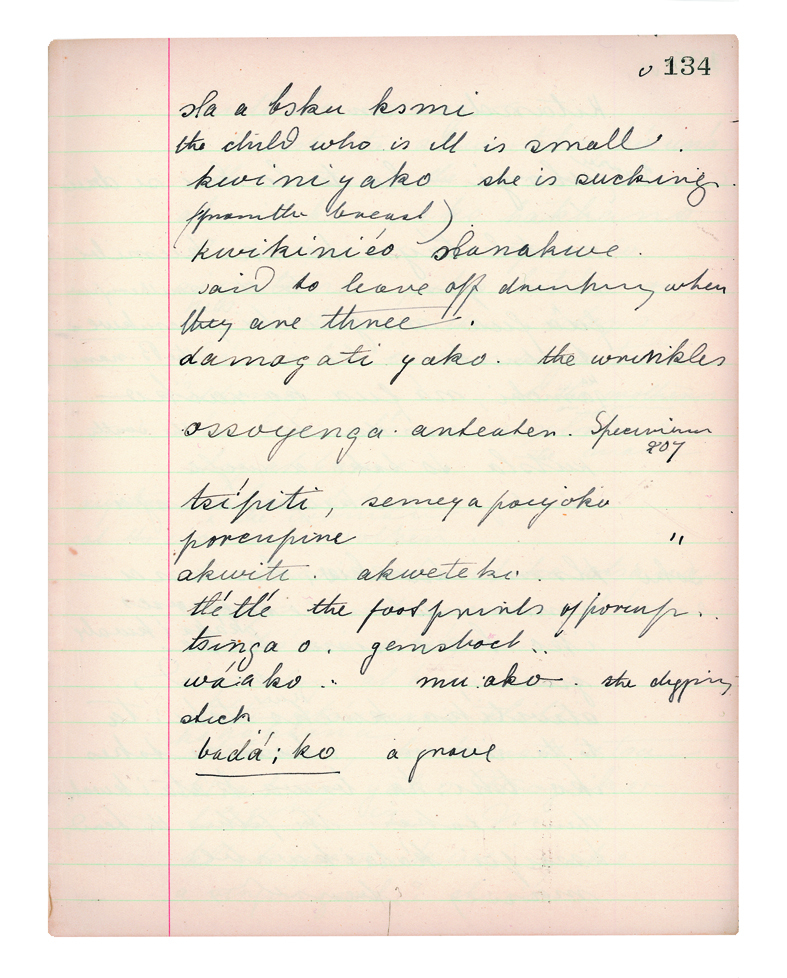 134
sla a bsku ksmi
the child who is ill is small.
kwiniyako she is sucking.
(from the breast)
kwikiniéo slanakwe.
said to leave off drinking when
they are three.
damagati yako. the wrinkles
ossoyenga. anteater. Specimen
207
tsípiti, semeya
porcupine "
akwiti. akweteki.
tlé tlé the footprints of porcup.
tsinga o. gemsbock..
wá:ako.. mu:ako. the digging
stick
badá; ko a grave